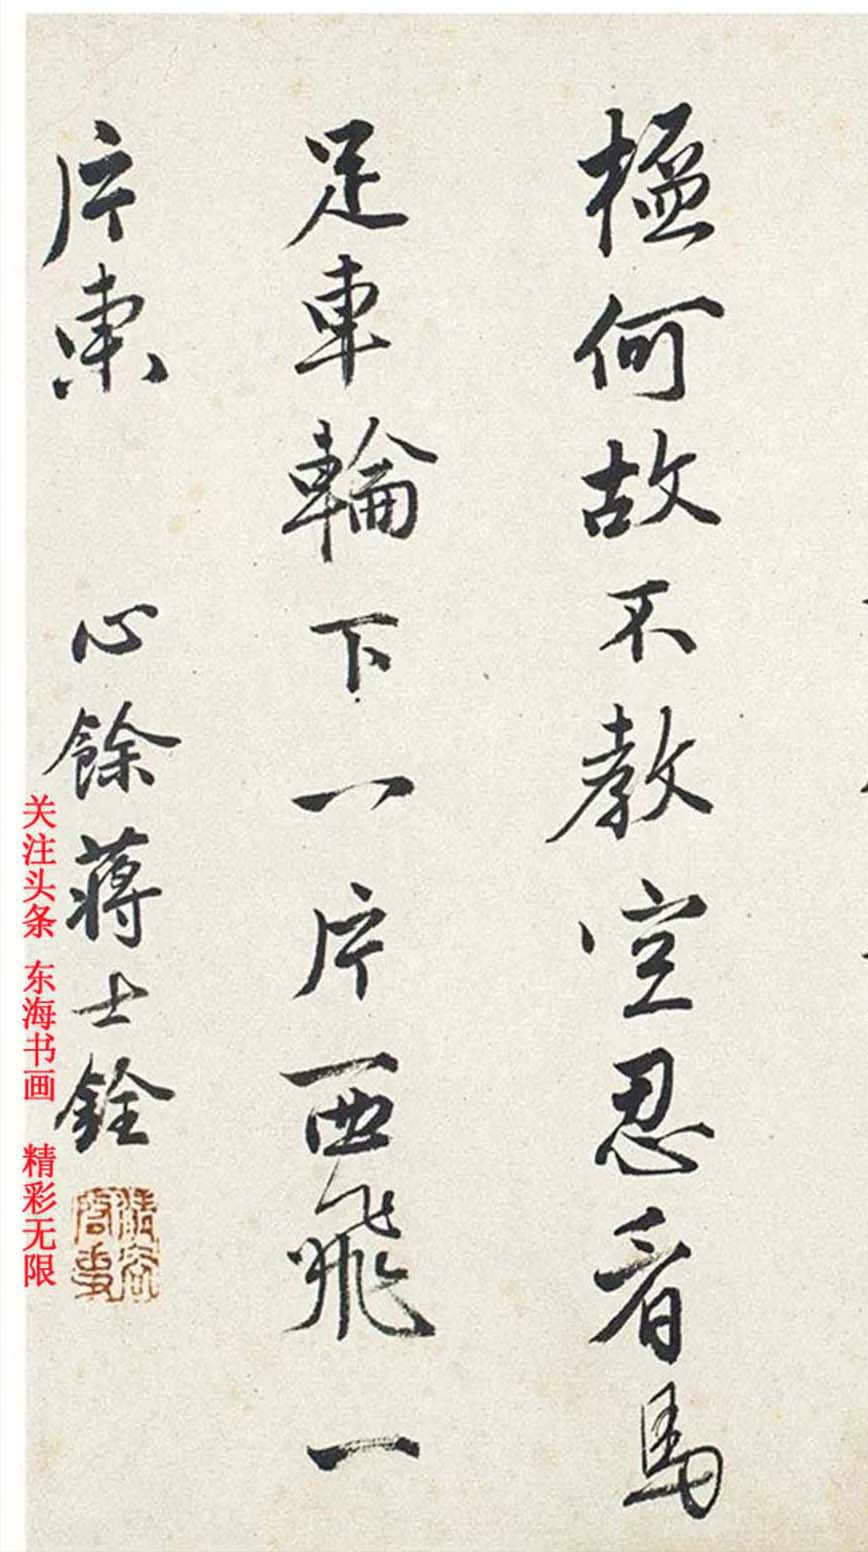 何故不教空忍看馬
足車輪下一片西飛一
片東
心餘蔣士銓
关注头条 东海书画 精彩无限